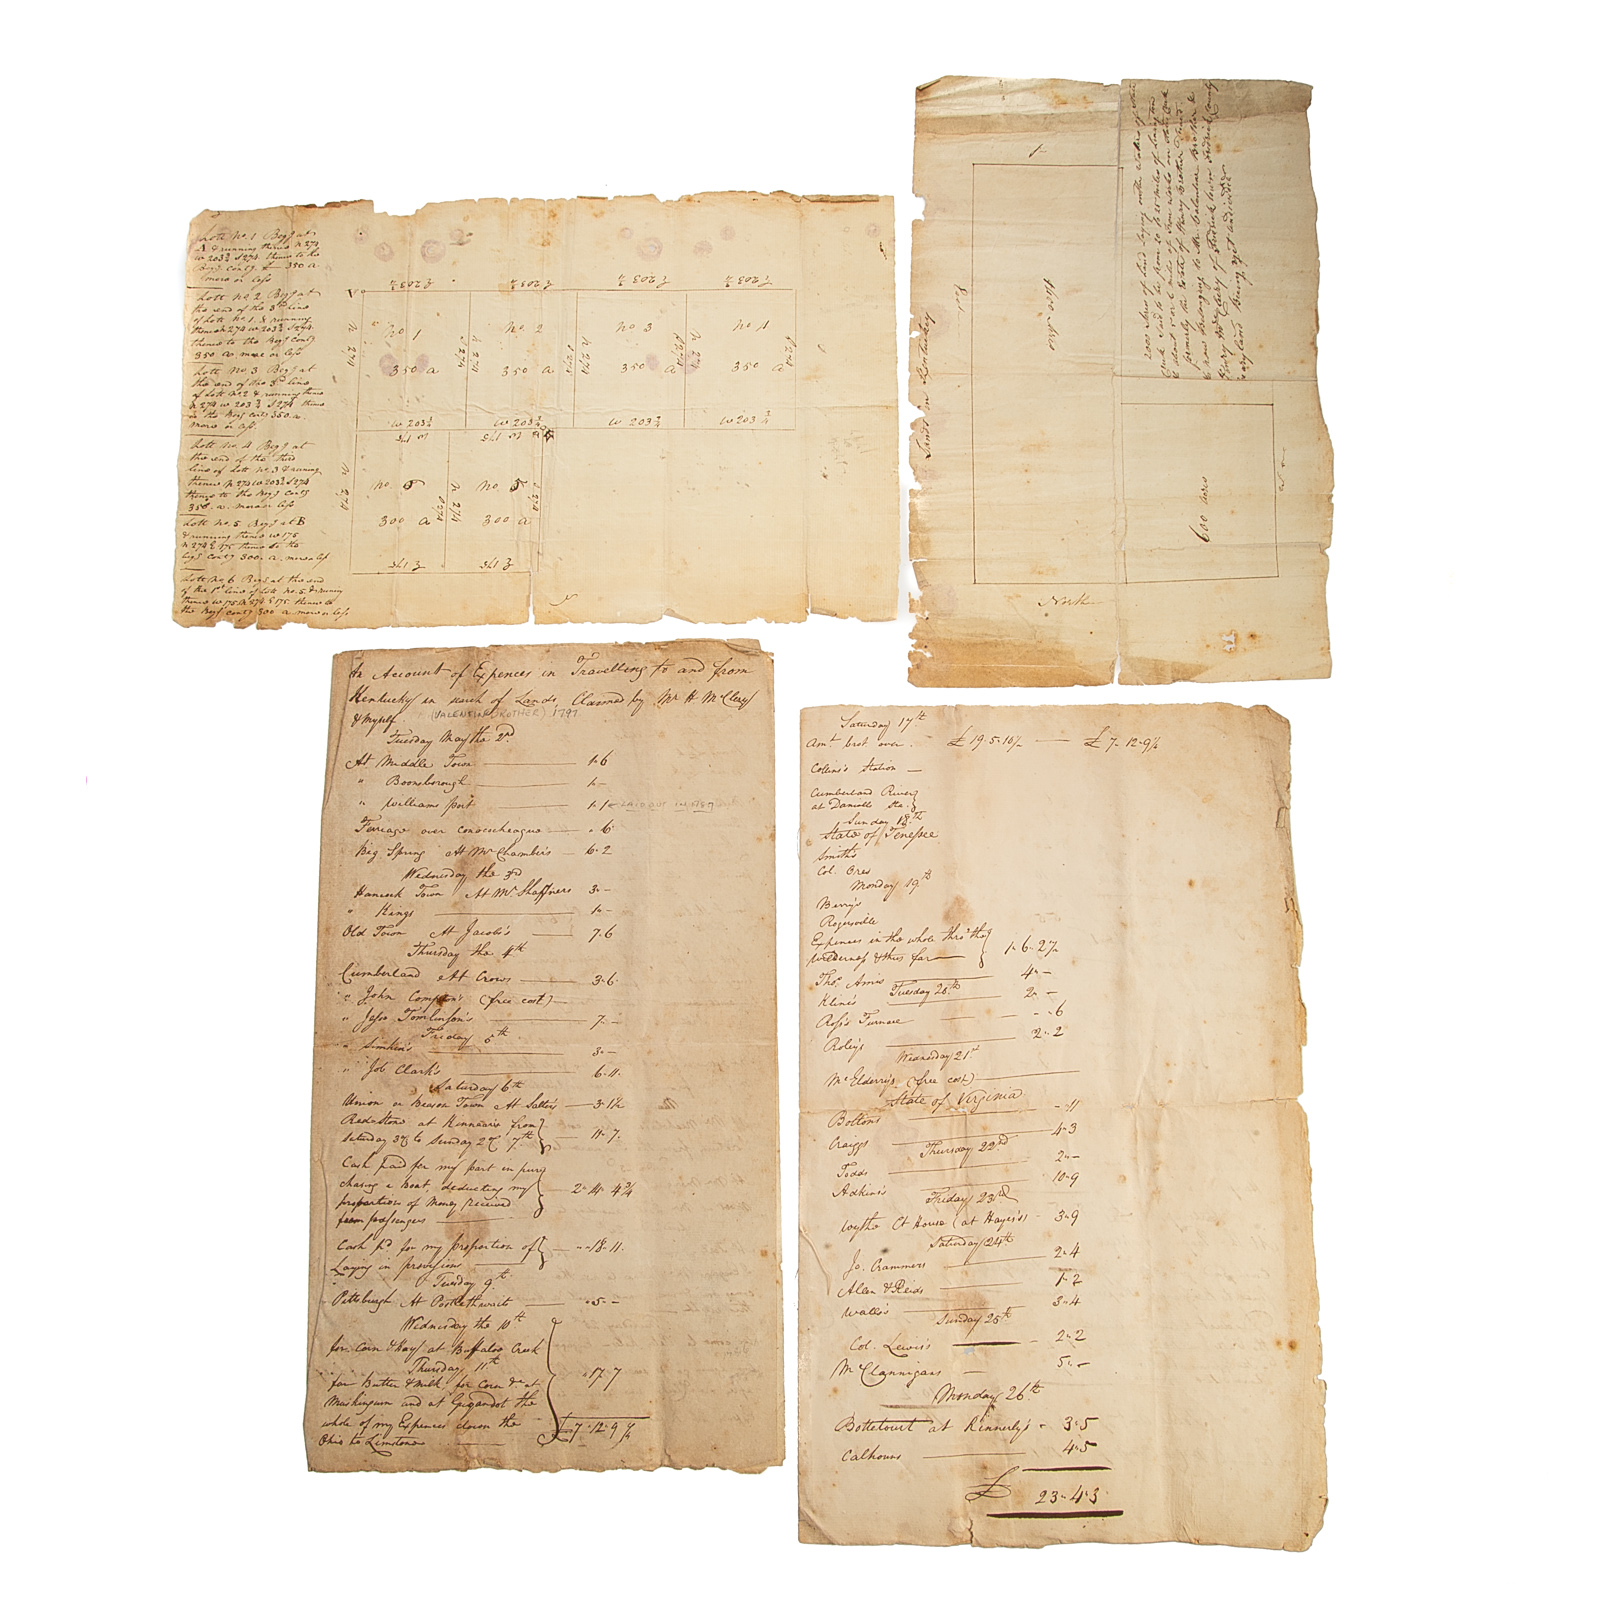 Lott No. 1 Beg.g at
A & running thence N 274
W 203¾ S 274 thence to the
Beg.g cont.g 350 a
more or less
Lott No. 2 Beg.g at
the end of the 3rd line
of Lott No. 1 & running
thence N 274 W 203¾ S 274
thence to the Beg.g cont.g
350 a more or less
Lott No. 3 Beg.g at
the end of the 3rd line
of Lott No. 2 & running thence
N 274 W 203¾ S 274 thence
to the Beg.g cont.g 350 a
more or less
Lott No. 4 Beg.g at
the end of the third
line of Lott No. 3 & running
thence N 274 W 203¾ S 274
thence to the Beg.g cont.g
350 a. more or less
Lott No. 5 Beg.g at B
& running thence W 175
N 274 E 175 thence to the
beg.g cont.g 300 a more or less
Lott No. 6 Beg.g at the end
of the 1st line of Lott No. 5 & running
thence W 175 N 274 E 175 thence to
the Beg.g cont.g 300 a more or less
E 203¾ E 203¾ E 203¾ E 203¾
A
No 1 No. 2 No 3 No 4
N 274 S 274 N 274 S 274 N 274 S 274 N 274 S 274
350 a 350 a 350 a 350 a
W 203¾ W 203¾ W 203¾ W 203¾
W 175 W 175 B
No 6 No. 5
N 274 S 274 N 274 S 274
300 a 300 a
E 175 E 175
Lands in Kentucky
1400 Acres
600 acres
North
2000 Acres of Land lying on the Waters of
Creek said to be from 10 to 25 miles of Lexington
& about 5 or 6 miles of Iron works on
formerly the Estate of Henry Brother Dec.d
& now belonging to Mr. Valentine Brother &
Henry McCleary of Fredrick town Fredrick County
Maryland Being yet undivided
An Account of Expences in Travelling to and from
Kentucky in search of Lands Claimed by Mr. H. McClery
& Myself (VALENTINE BROTHER) 1797
Tuesday May the 2nd
At Middle Town 1.6
" Boonsborough 1.-
" Williams port 1.1 ← LAID OUT IN 1787
Ferriage over Conococheague " 6
Big Spring At Mr. Chambers 6.2
Wednesday the 3rd
Hancock Town At Mr. Shaffners 3.-
" Kings 1.-
Old Town At Jacob's 7.6
Thursday the 4th
Cumberland At Crows 3.6
" John Compton's (free cost)
" Jesse Tomlinson's 7.-
Friday 5th
" Simkin's 3.-
" Job Clark's 6.11.
Saturday 6th
Union or Beason Town At Salter's 3.1½
Redstone at Kinnears from
Saturday 3 oC to Sunday 2 oC 7th 11.7.
Cash paid for my part in pur
chasing a Boat deducting my
proportion of Money received
from passengers 2.14.4¾
Cash pd for my proportion of
Laying in provisions ".18.11.
Tuesday 9th
Pittsburgh At Postlethwaits ".5.-
Wednesday the 10th
for Corn & Hay at Buffaloe Creek
Thursday 11th
for Butter & Milk for Corn &c at
Muskingum and at Guyandot the
whole of my Expences down the
Ohio to Limstone
".17.7
£7.12.9¼
Saturday 17th
Amt. brot over £19.5.10½ £7.12.9¼
Collins's Station
Cumberland River
at Daniells Sta.
Sunday 18th
State of Tenessee
Smith's
Col. Ores
Monday 19th
Berry's
Rogersville
Expences in the whole thro' the
Wilderness & thus far 1.6.2½
Thos. Amis 4.-
Tuesday 20th
Kline's 2.-
Ross's Furnace - -6
Roley's 2.2
Wednesday 21st
McElderry's (free cost)
State of Virginia
Boltons -.11
Craiggs 4.3
Thursday 22nd
Todds 2.-
Adkins's 10.9
Friday 23rd
Wythe Ct House (at Hayes's) 3.9
Saturday 24th
Jo. Crammers 2.4
Allen & Reids 1.2
Watts's 3.4
Sunday 25th
Col. Lewis's 2.2
McClannigans 5.-
Monday 26th
Bottetourt at Kinnerly's 3.5
Calhouns 4.5
£ 23.4.3